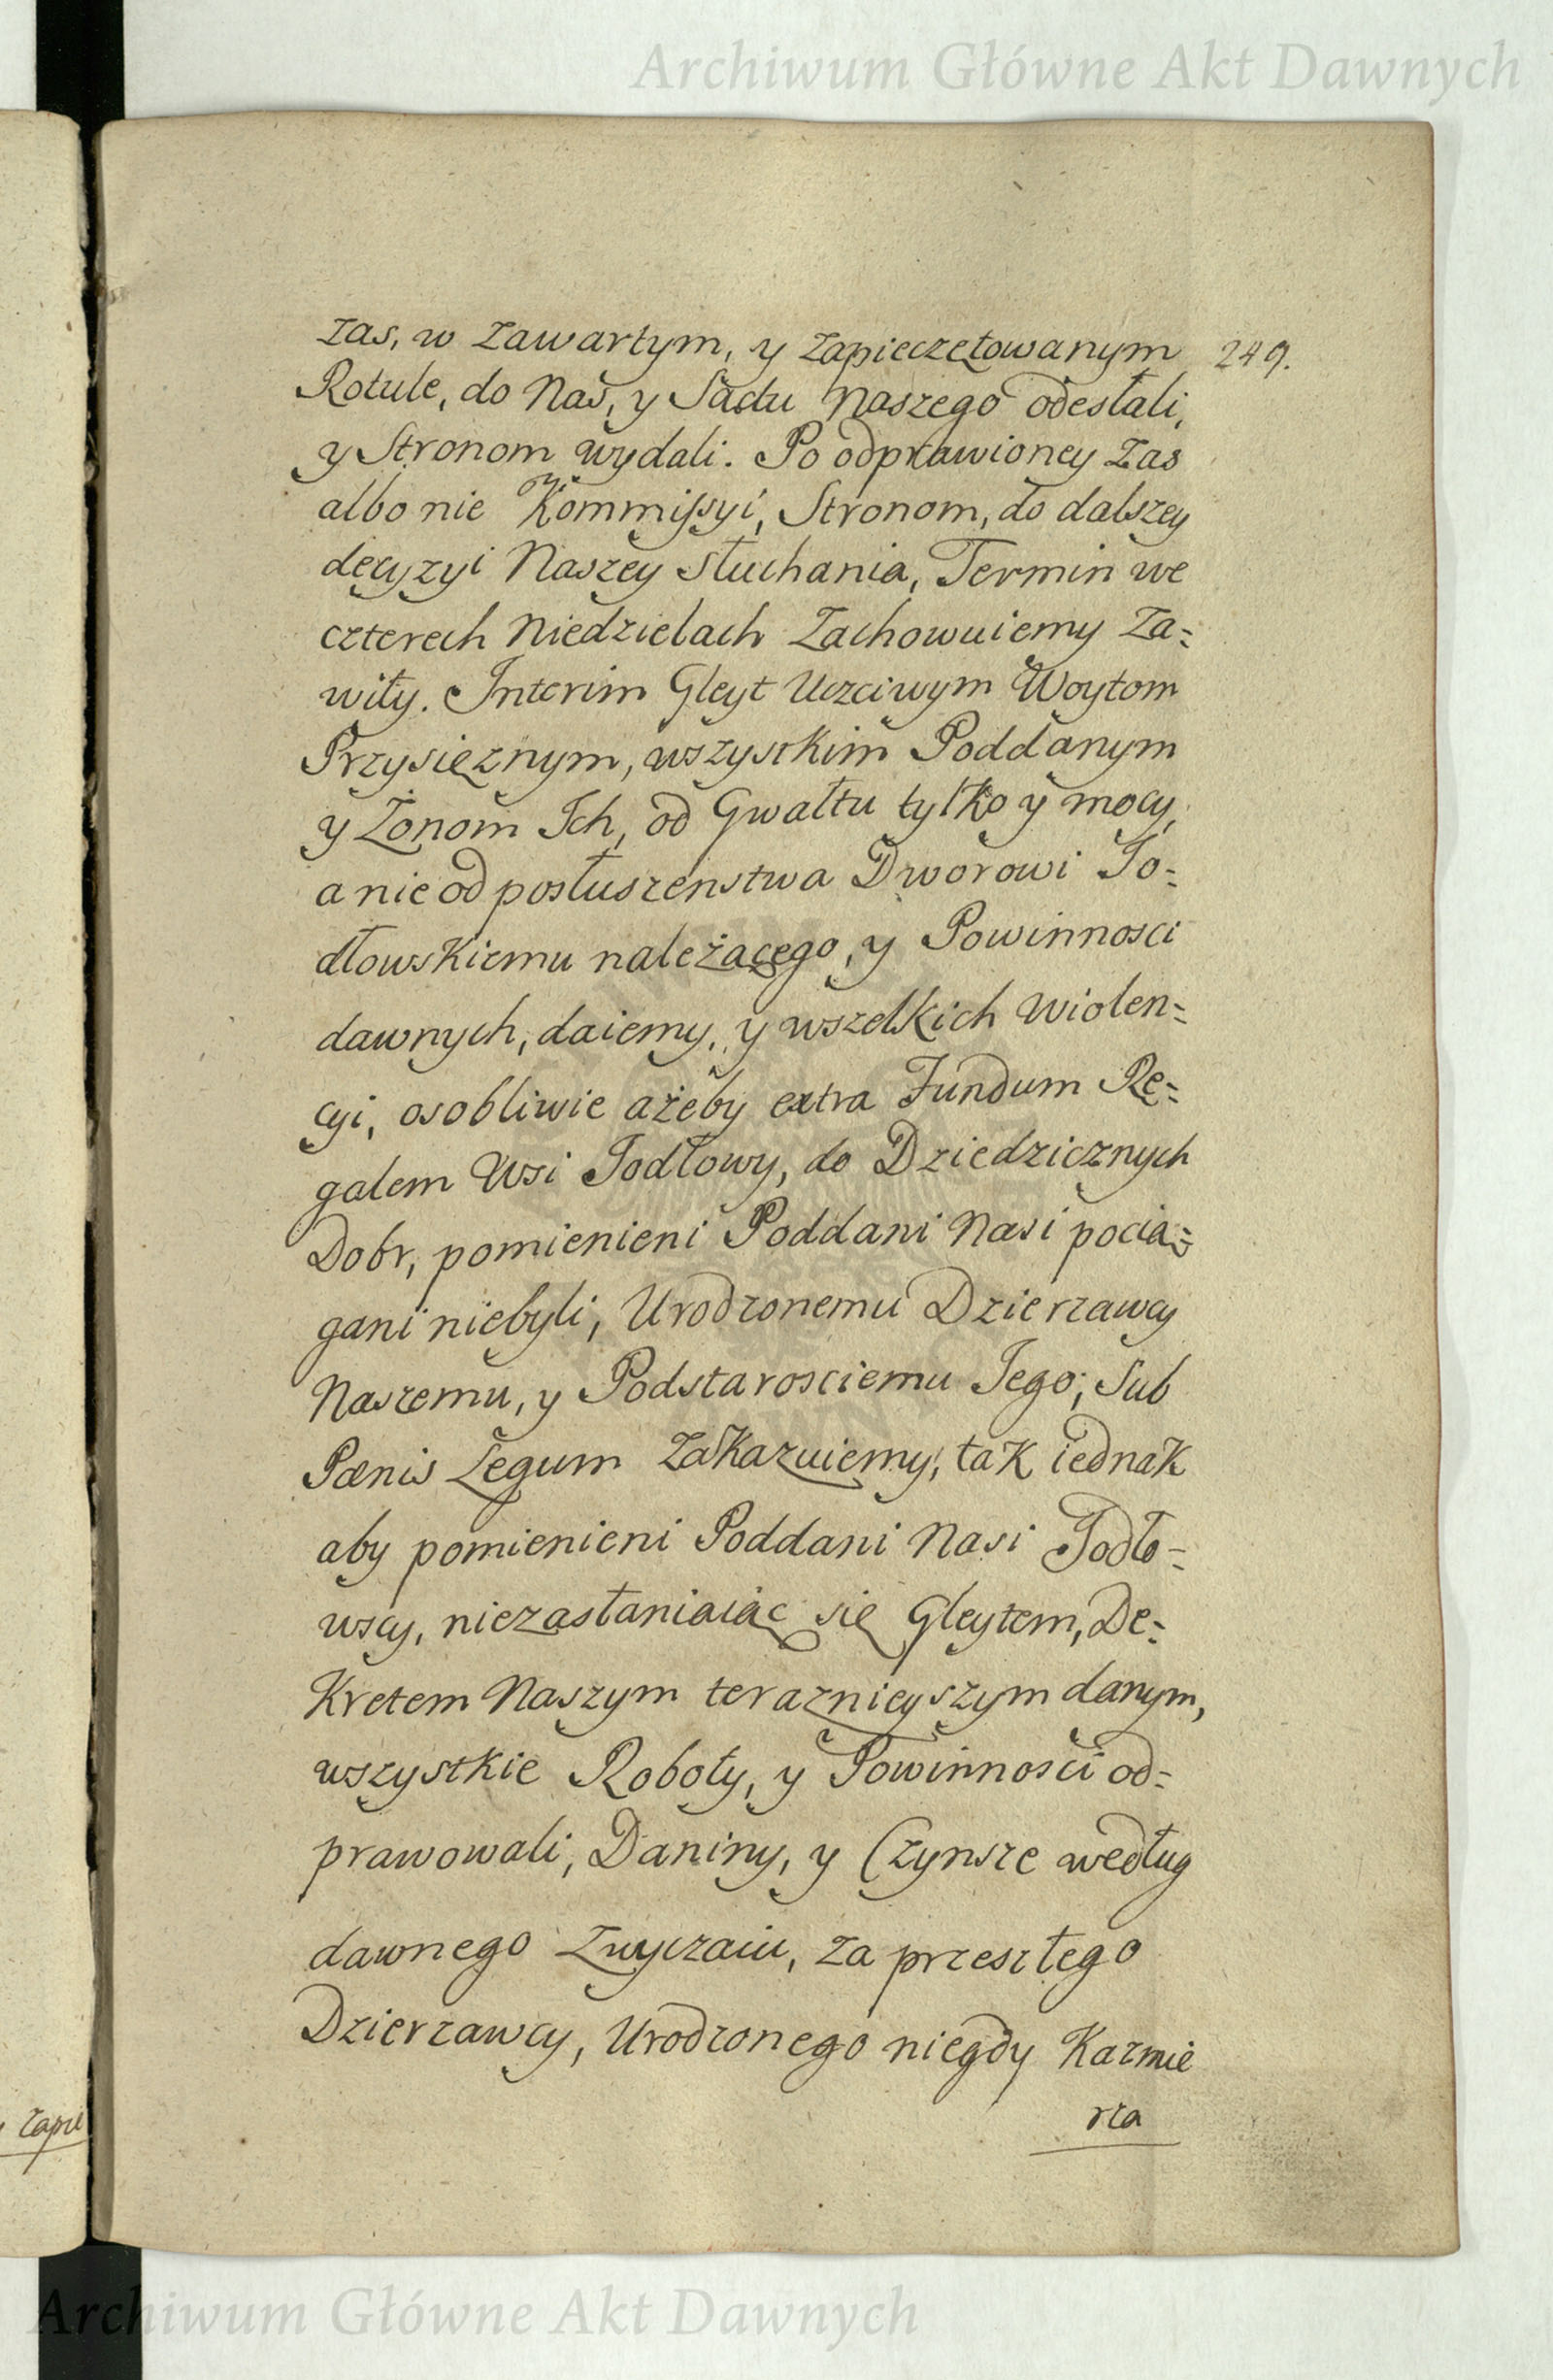 Archiwum Główne Akt Dawnych
zas, w zawartym, y zapieczętowanym
249.
Rotule, do Nas, y Sądu Naszego odesłali,
y Stronom wydali. Po odprawioney zas
albo nie Kommissyi, Stronom, do dalszey
decyzyi Naszey słuchania, Termin we
czterech Niedzielach Zachowuiemy Za=
wity. Interim Gleyt Uczciwym Woytom
Przysięznym, wszystkim Poddanym
y Żonom Ich, od Gwałtu tylko y mocy,
a nie od posłuszenstwa Dworowi Jo=
dłowskiemu należącego, y Powinnosci
dawnych, daiemy, y wszelkich wiolen=
cyi, osobliwie ażeby extra Fundum Re=
galem Wsi Jodłowy, do Dziedzicznych
Dobr, pomienieni Poddani Nasi pocią=
gani niebyli, Urodzonemu Dzierzawcy
Naszemu, y Podstarosciemu Jego, Sub
Pænis Legum zakazuiemy, tak iednak
aby pomienieni Poddani Nasi Jodło=
wscy, niezasłaniaiąc się Gleytem, De=
kretem Naszym terazniegszym danym,
wszystkie Roboty, y Powinności od=
prawowali, Daniny, y Czynsze według
dawnego Zwyczaiu, za przeszłego
Dzierzawcy, Urodzonego niegdy Kazmie
rza
zapie
Archiwum Główne Akt Dawnych